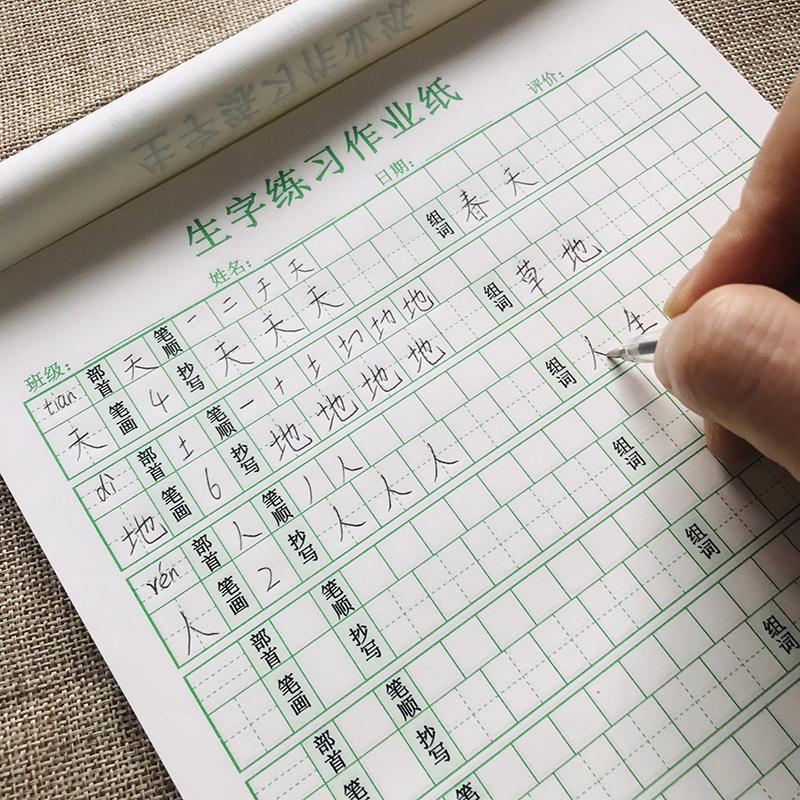 生字练习作业纸
班级: 姓名: 日期: 评价:
tiān 部首 天 笔顺 一 二 于 天
天 笔画 4 抄写 天 天 天 组词 春天
dì 部首 土 笔顺 一 十 土 切 地 地
地 笔画 6 抄写 地 地 地 地 组词 草地
rén 部首 人 笔顺 丿 人
人 笔画 2 抄写 人 人 人 组词 人生
部首 笔顺
笔画 抄写 组词
部首 笔顺
笔画 抄写 组词
笔 组词